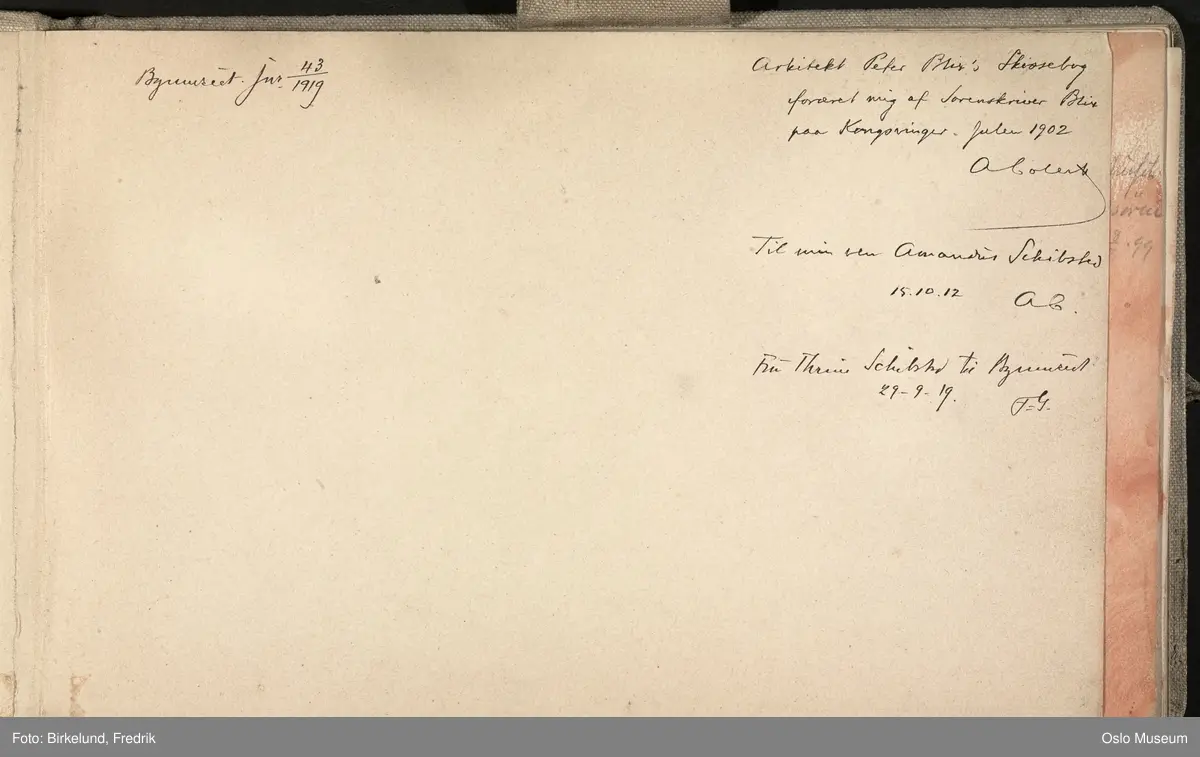 Bymuseet. Jnr. 43/1919
Arkitekt Peter Blix's Skissebog
foræret mig af Sorenskriver Blix
paa Kongsvinger. Julen 1902
Til min ven Amandus Schibsted
15.10.12 AC.
Fru Thrine Schibsted til Bymuseet.
29-9-19. F=G.
99
Foto: Birkelund, Fredrik
Oslo Museum